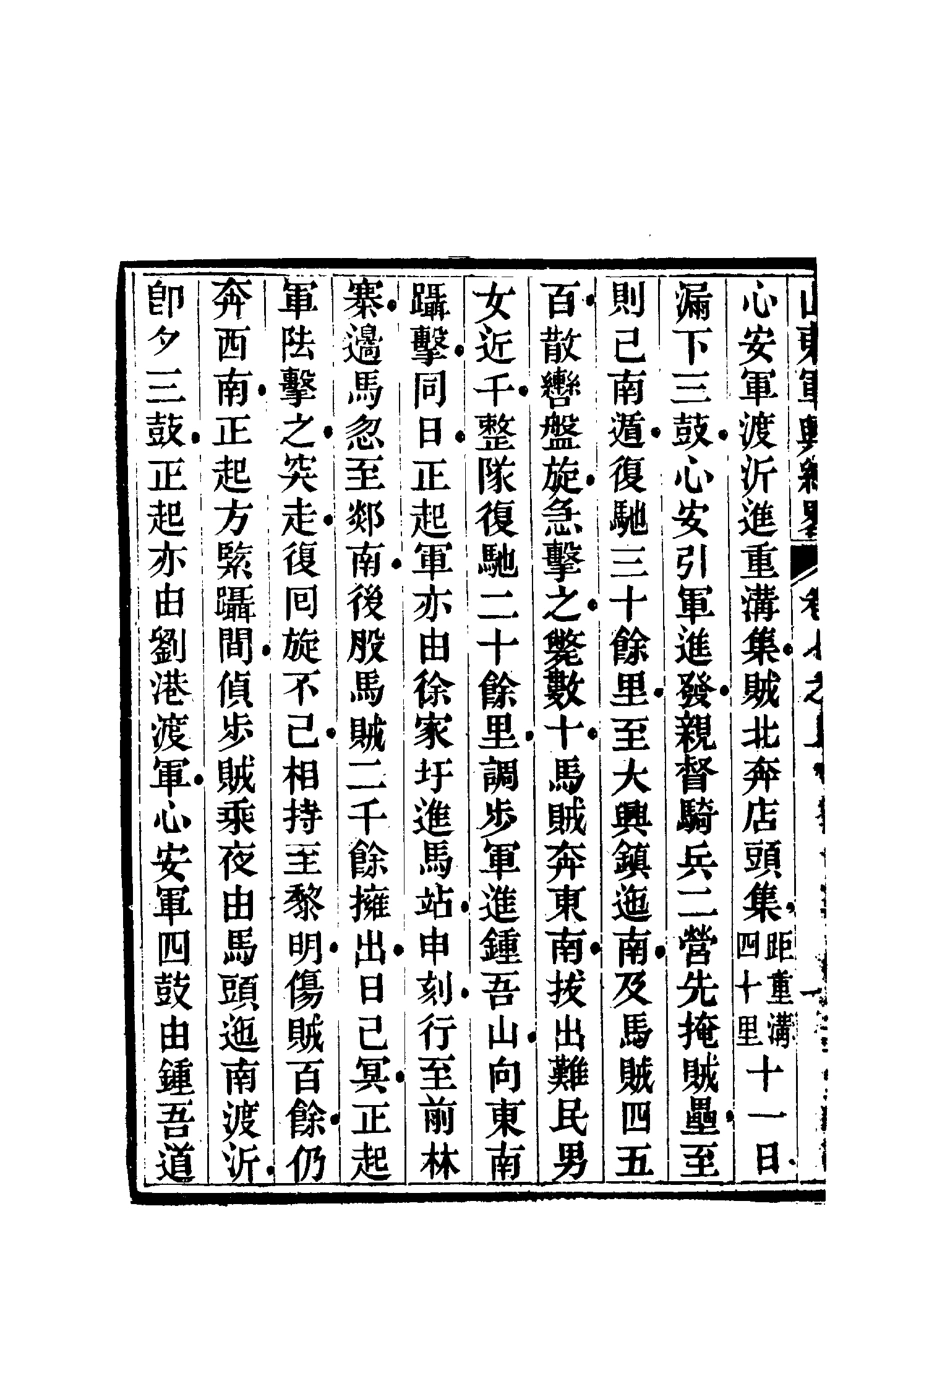 山東軍興紀畧 卷七之
心安軍渡沂進重溝集賊北奔店頭集距重溝四十里十一日
漏下三鼓心安引軍進發親督騎兵二營先掩賊壘至
則已南遁復馳三十餘里至大興鎮迤南及馬賊四五
百散轡盤旋急擊之斃數十馬賊奔東南拔出難民男
女近千整隊復馳二十餘里調步軍進鍾吾山向東南
躡擊同日正起軍亦由徐家圩進馬站申刻行至前林
寨邊馬忽至郯南後股馬賊二千餘擁出日已冥正起
軍阹擊之突走復囘旋不已相持至黎明傷賊百餘仍
奔西南正起方緊躡間偵步賊乘夜由馬頭迤南渡沂
卽夕三鼓正起亦由劉港渡軍心安軍四鼓由鍾吾道